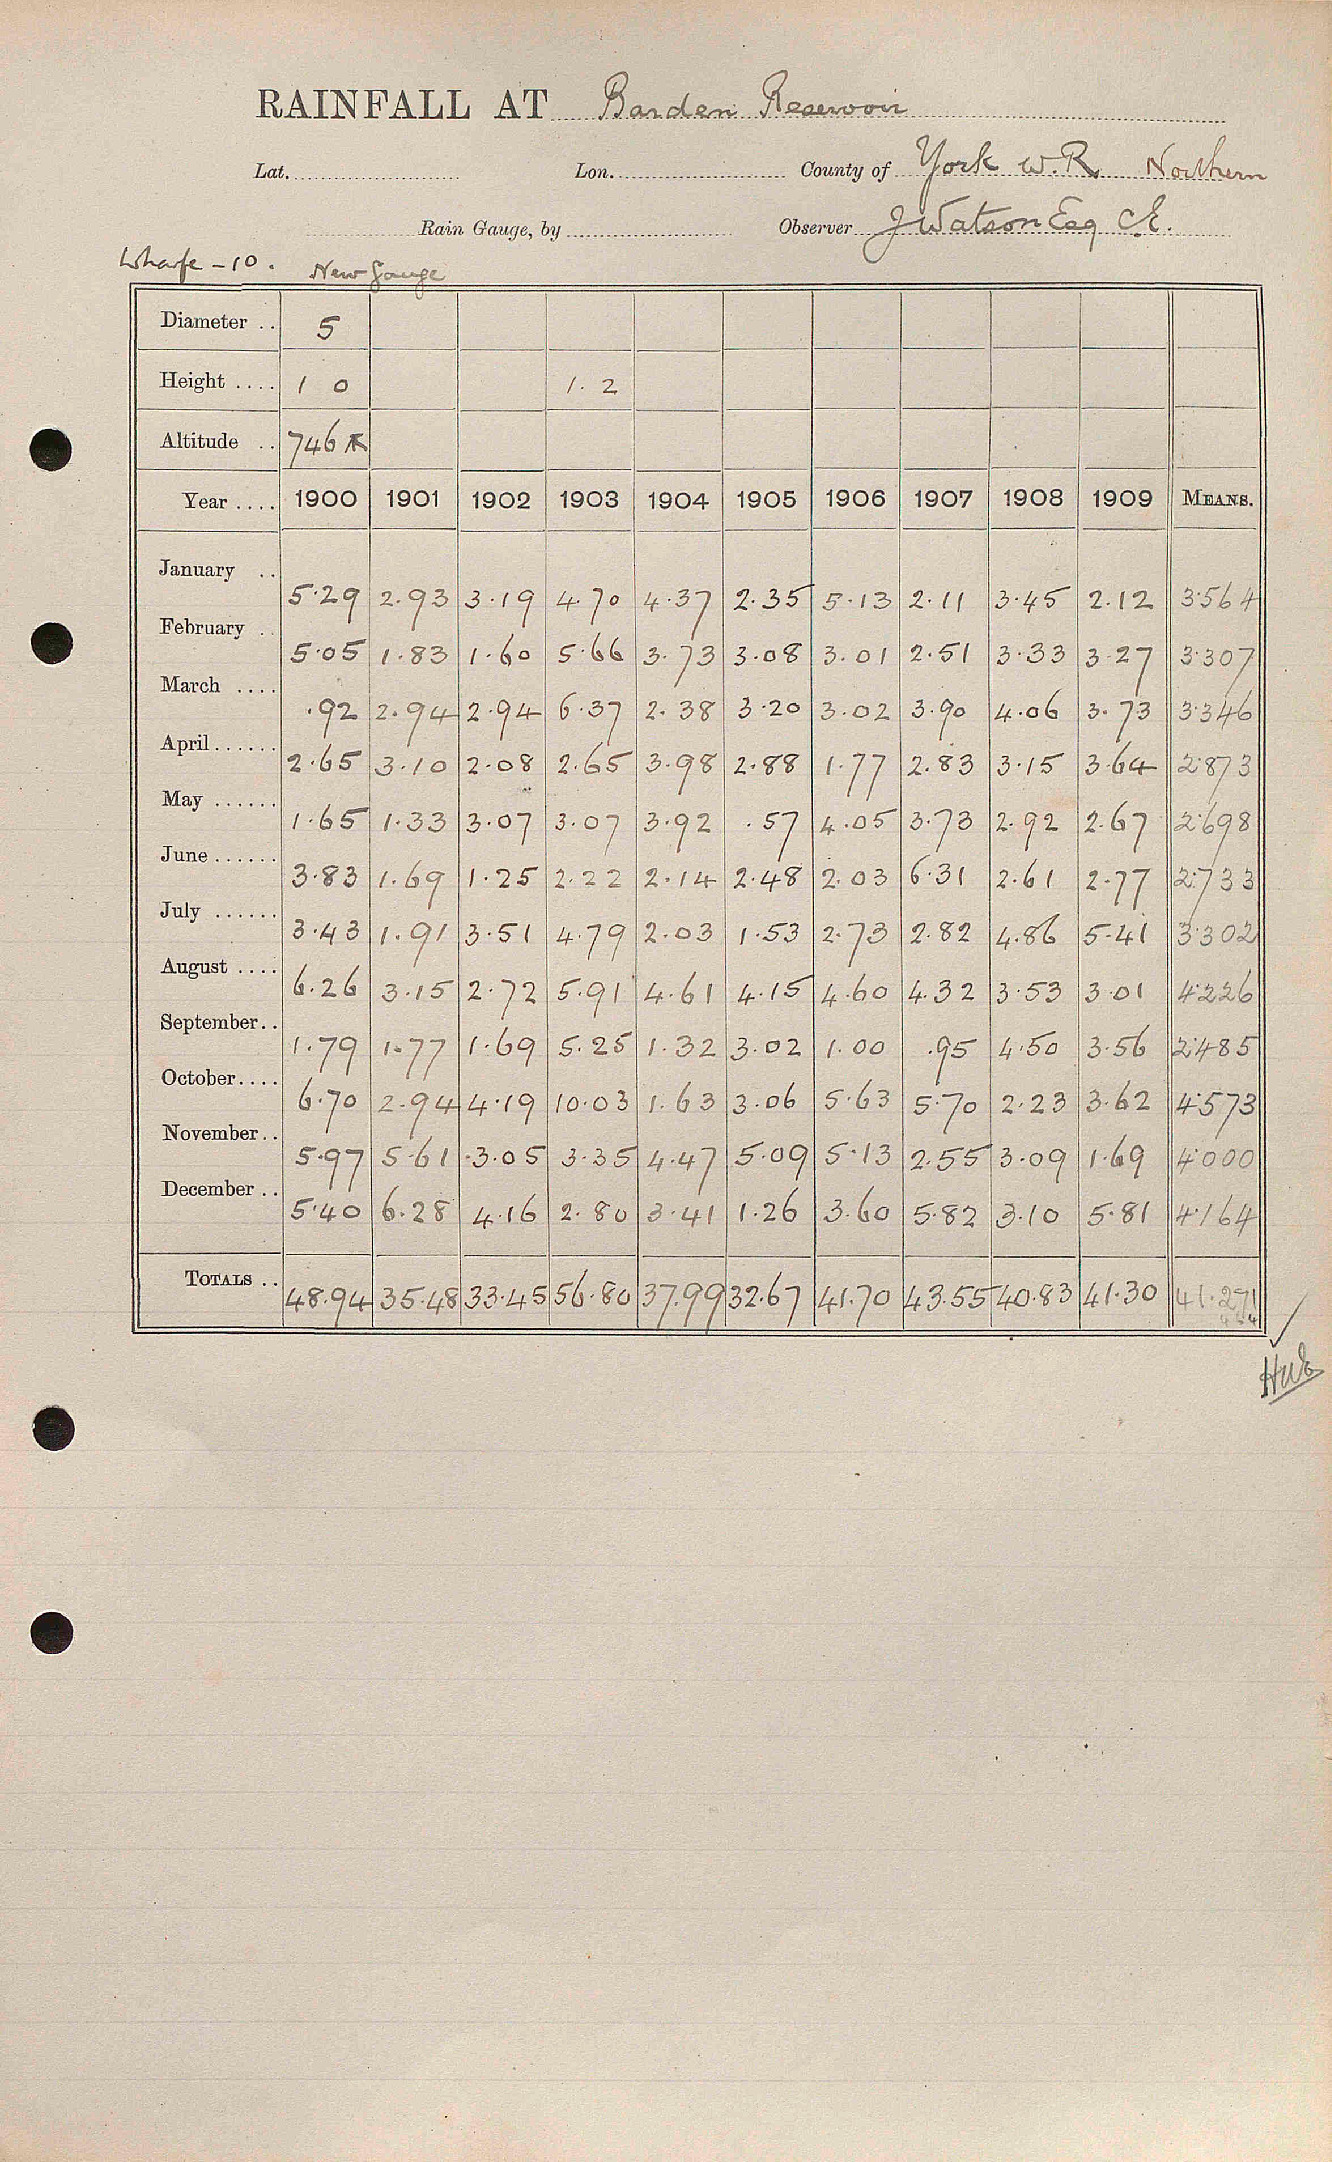 RAINFALL AT Barden Reservoir
Lat. Lon. County of York W.R. Northern
Rain Gauge, by Observer J Watson Esq C.E.
Wharfe - 10. New Gauge
Diameter .. 5
Height .... 1 0 1. 2
Altitude .. 746
Year .... 1900 1901 1902 1903 1904 1905 1906 1907 1908 1909 MEANS.
January .. 5.29 2.93 3.19 4.70 4.37 2.35 5.13 2.11 3.45 2.12 3.564
February .. 5.05 1.83 1.60 5.66 3.73 3.08 3.01 2.51 3.33 3.27 3.307
March .... .92 2.94 2.94 6.37 2.38 3.20 3.02 3.90 4.06 3.73 3.346
April...... 2.65 3.10 2.08 2.65 3.98 2.88 1.77 2.83 3.15 3.64 2.873
May ...... 1.65 1.33 3.07 3.07 3.92 .57 4.05 3.73 2.92 2.67 2.698
June...... 3.83 1.69 1.25 2.22 2.14 2.48 2.03 6.31 2.61 2.77 2.733
July ...... 3.43 1.91 3.51 4.79 2.03 1.53 2.73 2.82 4.86 5.41 3.302
August .... 6.26 3.15 2.72 5.91 4.61 4.15 4.60 4.32 3.53 3.01 4.226
September.. 1.79 1.77 1.69 5.25 1.32 3.02 1.00 .95 4.50 3.56 2.485
October.... 6.70 2.94 4.19 10.03 1.63 3.06 5.63 5.70 2.23 3.62 4.573
November.. 5.97 5.61 3.05 3.35 4.47 5.09 5.13 2.55 3.09 1.69 4.000
December .. 5.40 6.28 4.16 2.80 3.41 1.26 3.60 5.82 3.10 5.81 4.164
TOTALS .. 48.94 35.48 33.45 56.80 37.99 32.67 41.70 43.55 40.83 41.30 41.271